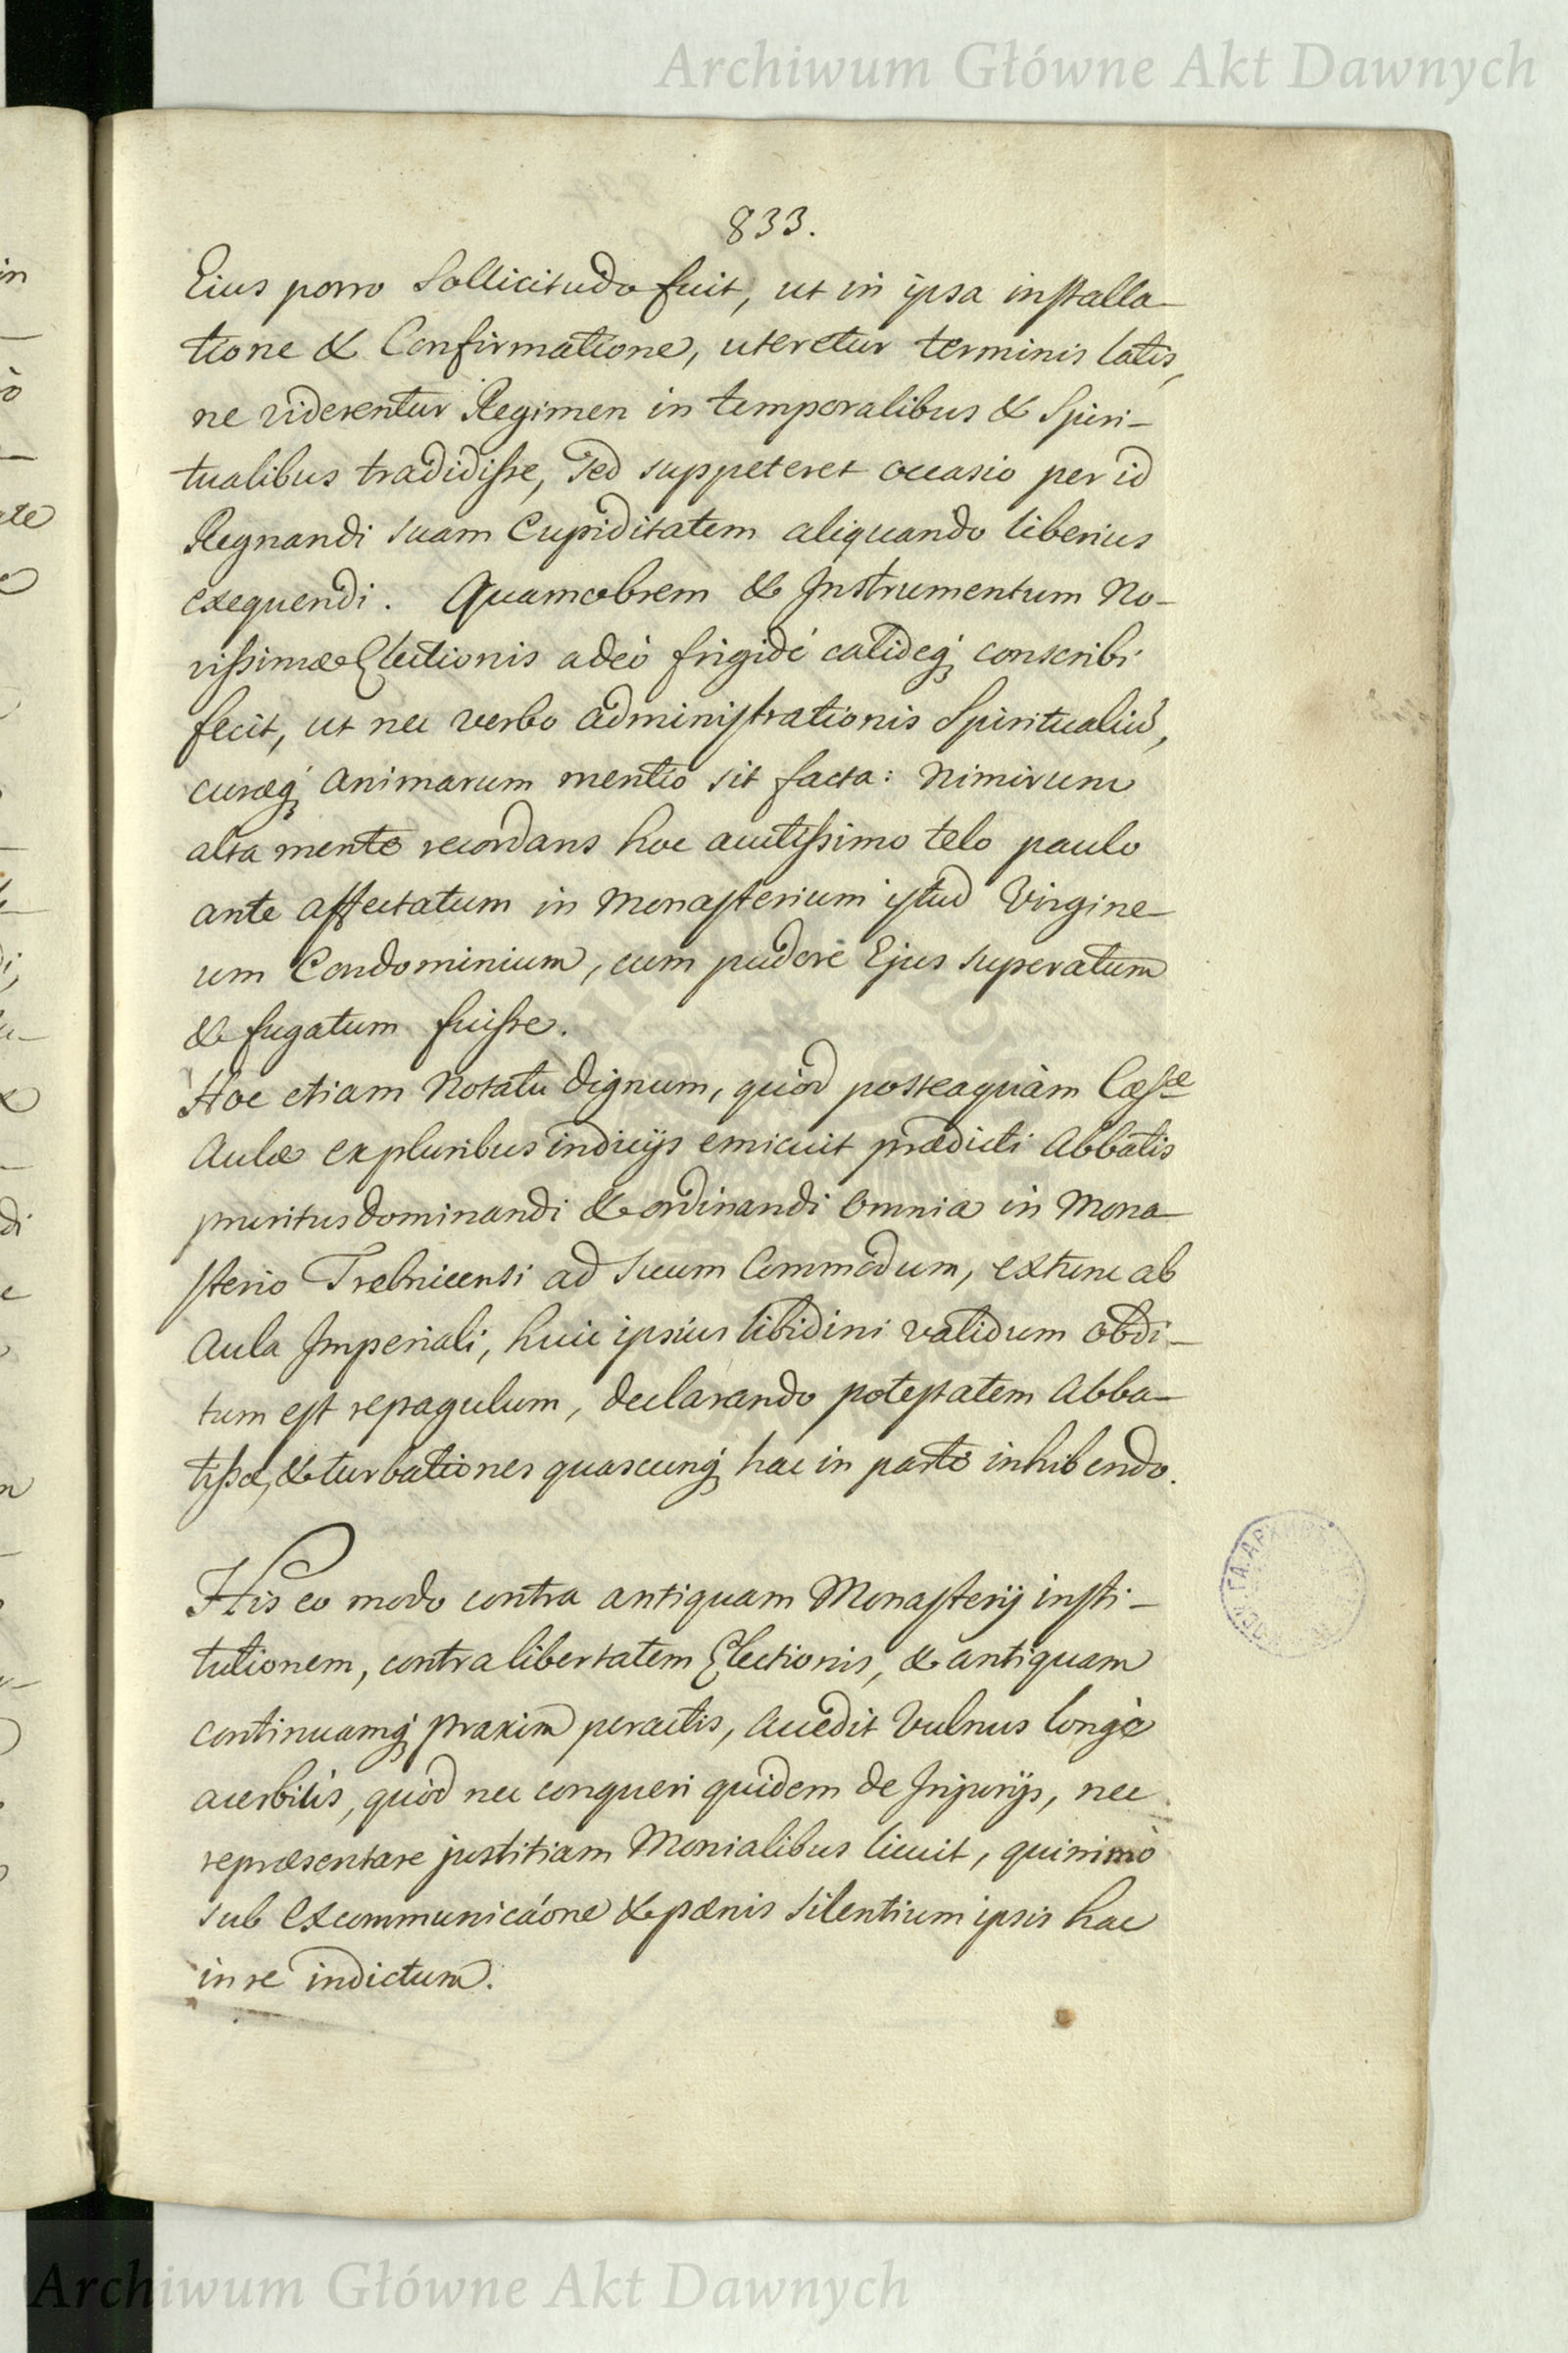 Archiwum Główne Akt Dawnych
833.
Eius porro Sollicitudo fuit, ut in ipsa installa-
tione & Confirmatione, uteretur terminis latis,
ne viderentur Regimen in temporalibus & Spiri-
tualibus tradidisse, sed suppeteret occasio per id
Regnandi suam Cupiditatem aliquando liberius
exequendi. Quamobrem & Instrumentum No-
vissimæ Electionis adeò frigidé calideq; conscribi
fecit, ut nec verbo administrationis Spiritualiũ,
curæq; animarum mentio sit facta: Nimirum
alta mente recordans hoc acutissimo telo paulo
ante affectatum in Monasterium istud Virgine-
um Condominium, cum pudore Ejus superatum
& fugatum fuisse.
Hoc etiam Notatu dignum, quòd posteaquàm Cæsæ
Aulæ ex pluribus indicijs emicuit prædicti Abbatis
pruritus dominandi & ordinandi Omnia in Mona-
sterio Trebnicensi ad suum Commodum, extunc ab
Aula Imperiali, huic ipsius libidini validum obdi-
tum est repagulum, declarando potestatem Abba-
tissæ, & turbationes quascunq; hac in parte inhibendo.
His eo modo contra antiquam Monasterij insti-
tutionem, contra libertatem Electionis, & antiquam
continuamq; praxim peractis, accedit Vulnus longè
acerbiùs, quòd nec conqueri quidem de Injurijs, nec
repræsentare justitiam Monialibus licuit, quinimò
sub excommunicáone & pænis silentium ipsis hac
in re indictum.
Archiwum Główne Akt Dawnych